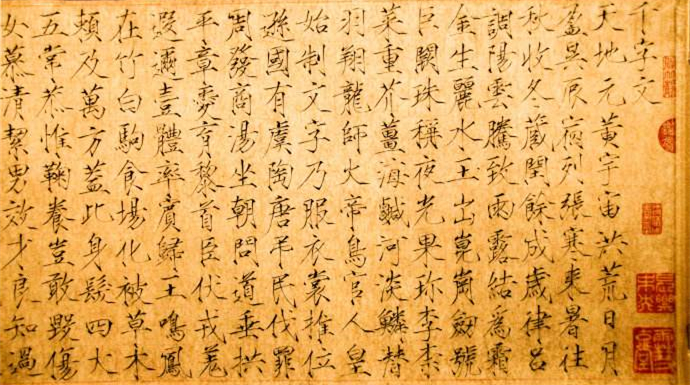 千字文
天地元黃宇宙洪荒日月
盈昃辰宿列張寒來暑往
秋收冬藏閏餘成歲律呂
調陽雲騰致雨露結為霜
金生麗水玉出崑崗劍號
巨闕珠稱夜光果珍李柰
菜重芥薑海鹹河淡鱗潛
羽翔龍師火帝鳥官人皇
始制文字乃服衣裳推位
遜國有虞陶唐弔民伐罪
周發商湯坐朝問道垂拱
平章愛育黎首臣伏戎羌
遐邇壹體率賓歸王鳴鳳
在竹白駒食場化被草木
賴及萬方蓋此身髮四大
五常恭惟鞠養豈敢毀傷
女慕清絜男效才良知過